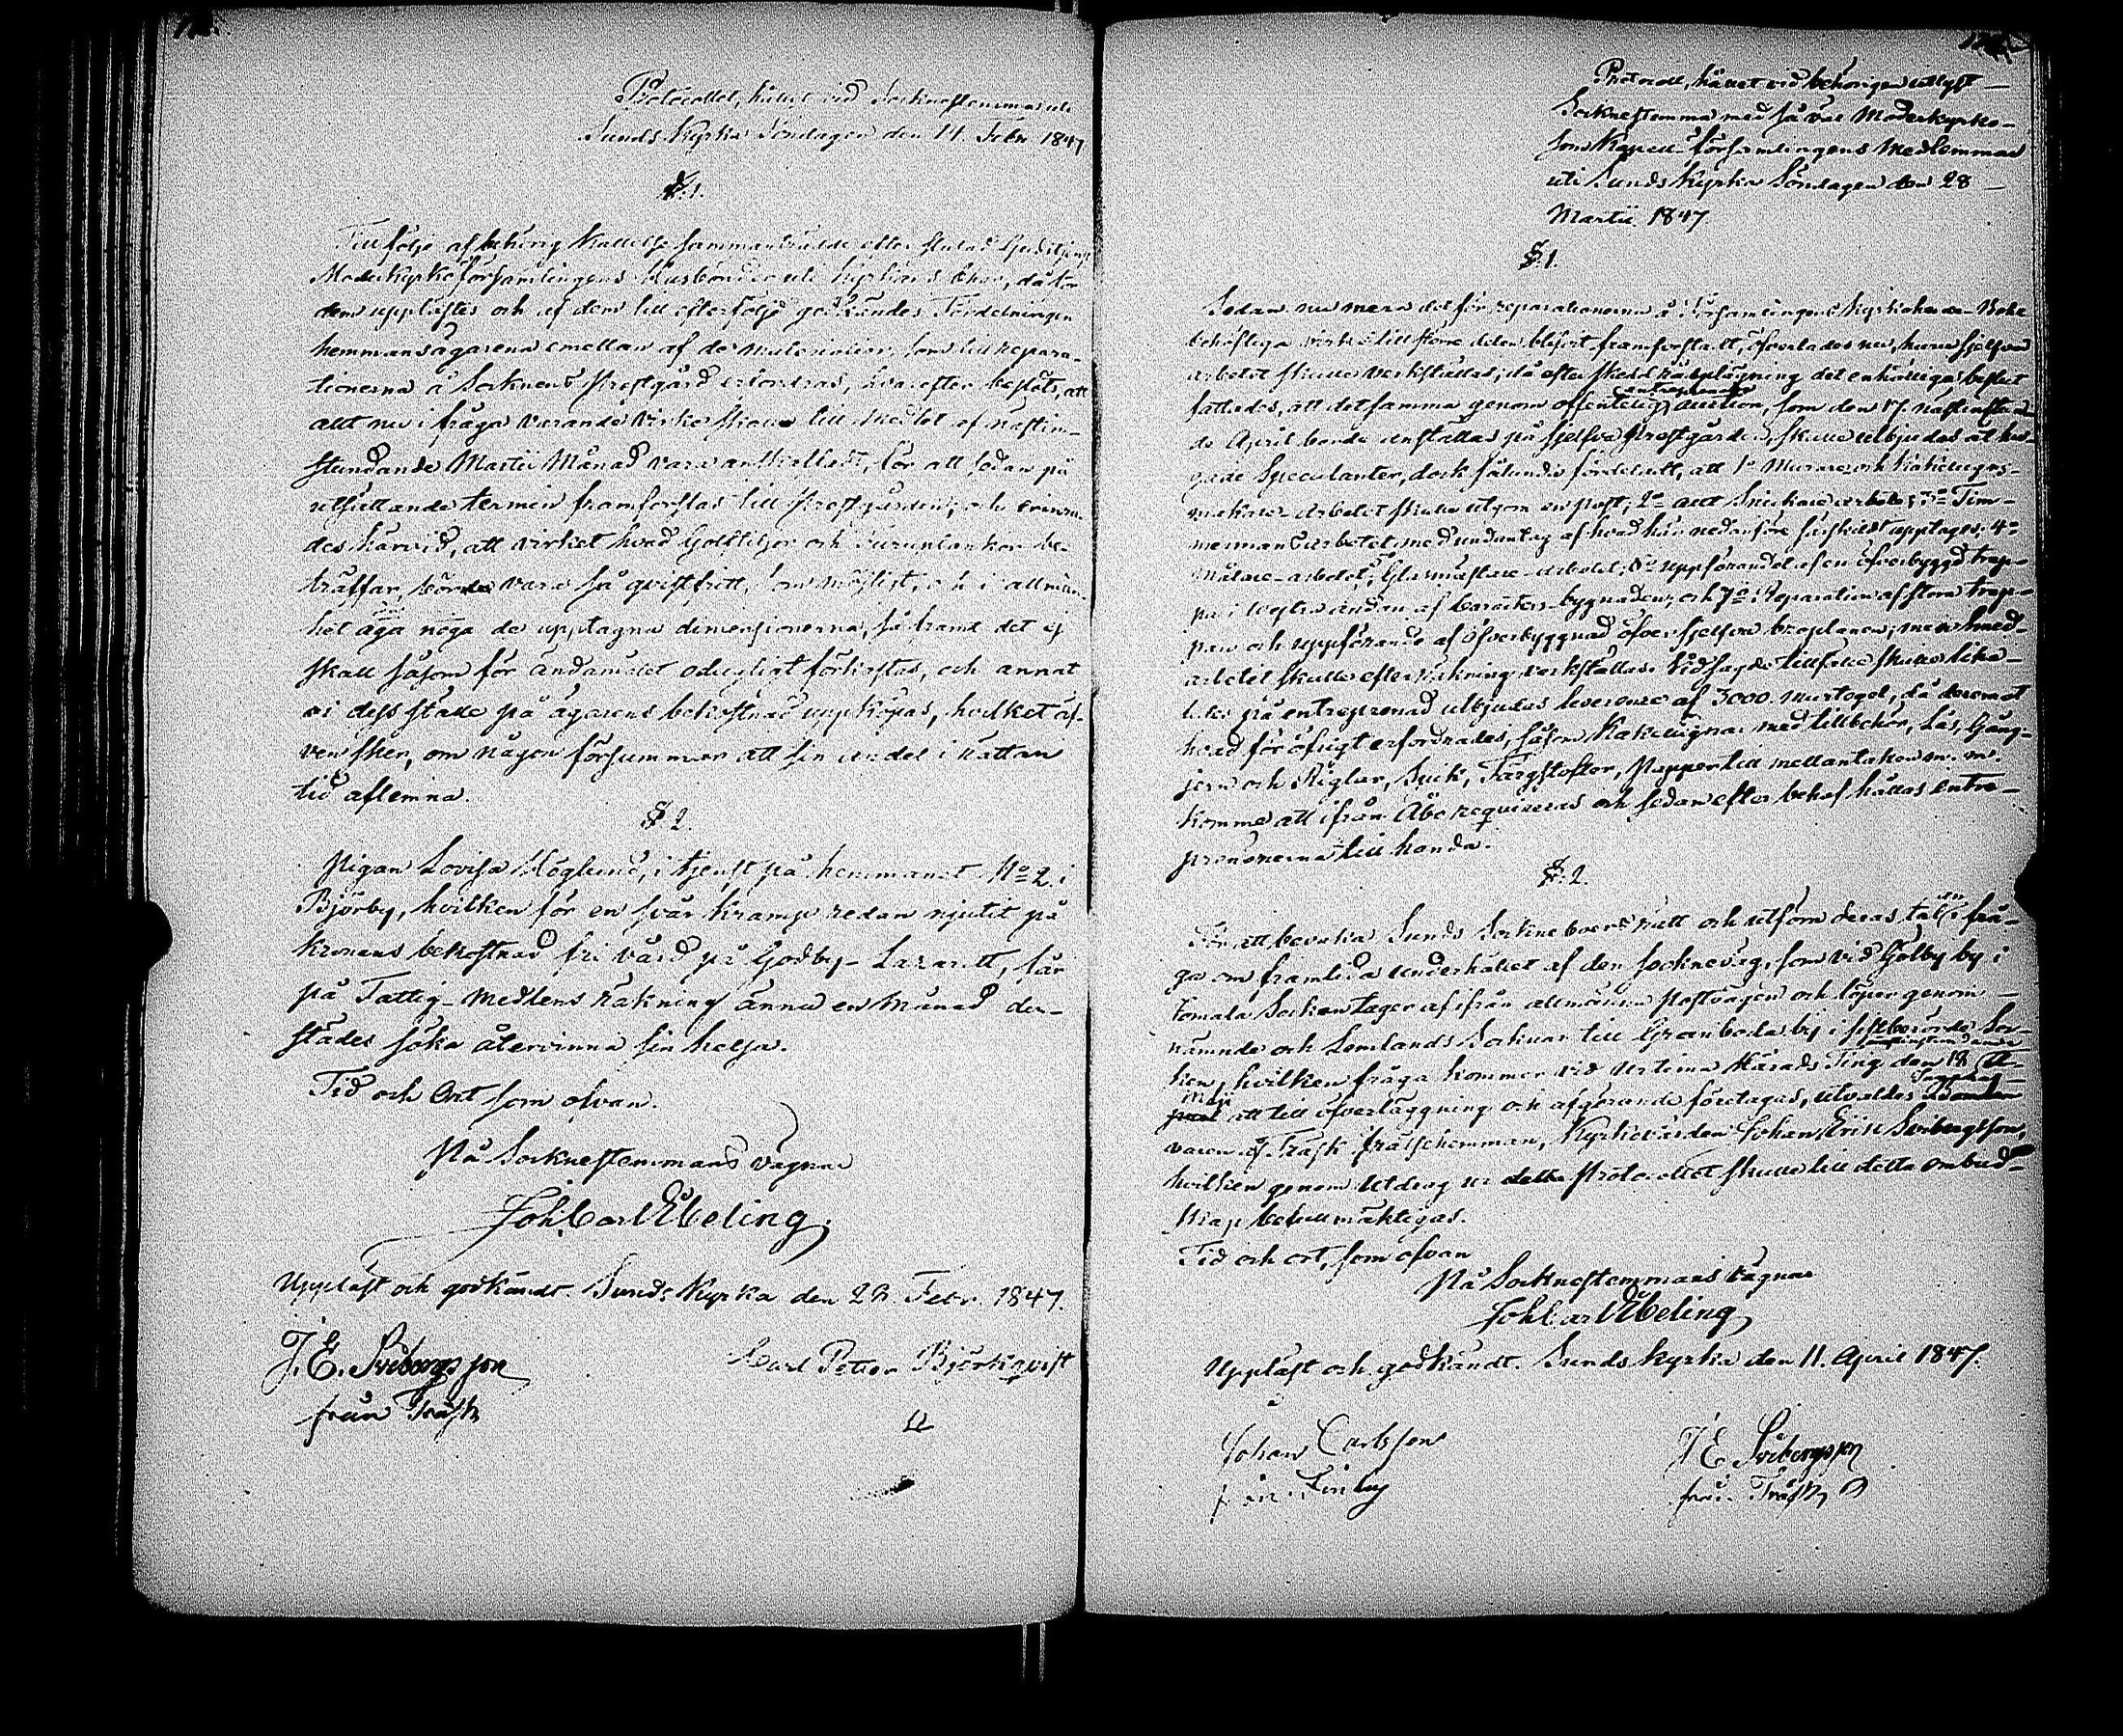 Protocollet, hållit vid Socknestemma uti
Sunds Kyrka Söndagen den 11. Febr 1847
§. 1.
Till följe af behörig kallelse sammanträdde efter slutad Gudstjenst
Moderkyrkoförsamlingens Husbönder uti kyrkans Chor, då för
dem upplästes och af dem till efterföljd godkändes Fördelningen
hemmansägarena emellan af de materialier, som till repara-
tionerna å Socknens Prestgård erfordras, hvarefter beslöts, att
allt nu i fråga varande virke skulle till medlet af nästin-
stundande Martii Månad vara anskaffadt, för att sedan på
utsättande termin framforslas till Prestgården; och erinra-
des härvid, att virket hvad Golftiljor och Furuplankor be-
träffar, borde vara så qvistfritt, som möjligt, och i allmän-
het äga noga de upptagna dimensionerna, så framt det ej
skall såsom för ändamålet odugligt förkastas, och annat
i dess ställe på ägarens bekostnad uppköpas, hvilket äf-
ven sker, om någon försummar att sin andel i rättan
tid aflemna.
§. 2.
Pigan Lovisa Höglund, i tjenst på hemmanet No 2. i
Björby, hvilken för en svår kramp redan njutit på
kronans bekostnad fri vård på Godby-Lazarett, får
på Fattig-medlens räkning ännu en månad der-
städes söka återvinna sin helsa.
Tid och Ort som ofvan.
På Socknestemmans vägnar
Joh. Carl Ebeling.
Uppläst och godkändt. Sunds Kyrka den 28. Febr. 1847.
J. E. Svibergsson
från Träsk
Carl Petter Björkqvist
Protocoll, hållet vid behörigen utlyst
Socknestemma med så väl Moderkyrko-
som Kapell-församlingens Medlemmar
uti Sunds Kyrka Söndagen den 28
Martii 1847
§. 1.
Sedan nu mera det för reparationerna å Församlingens Kyrkoherde-Bohl
behöfliga virke till större delen blifvit framforsladt, öfverlades nu, huru sjelfva
arbetet skulle verkställas; då efter skedd rådplägning det enhälliga beslut
fattades, att detsamma genom offentelig entreprenads auction, som den 17. nästinstun-
de April borde anställas på sjelfva Prestgården, skulle utbjudas åt hu-
gade Speculanter, dock sålunda fördeladt, att 1o Murare och Kakelugns-
makare-arbetet skulle utgöra en post; 2o allt Snickare arbete; 3o Tim-
mermans arbetet med undantag af hvad här nedanföre särskildt upptages; 4o
Målare-arbetet; 5o Glasmästare-arbetet; 6o uppförandet af en öfverbyggd trap-
pa i westra ändan af karakters-byggnaden; och 7o Reparation af stora trap-
pan och uppförande af öfverbyggnad öfver sjelfva broplanen; men smed-
arbetet skulle efter räkning verkställas. Vid sagde tillfälle skulle lika-
ledes på entreprenad utbjudas leverence af 3000. murtegel, då deremot
hvad för öfrigt erfordrades, såsom Kakelugnar med tillbehör, Lås, Gång-
jern och Riglar, Färgstofter, Papper till mellantaken m. m.
komme att ifrån Åbo requireras och sedan efter behof hållas entre-
prenörerna till handa.
§. 2.
För att bevaka Sunds Socknebors rätt och utföra deras talan i frå-
ga om framtida underhållet af den sockneväg, som vid Gölby by i
Jomala Socken tager af ifrån allmänna Postvägen och löper genom
nämnde och Lemlands Socknar till Granboda by i sistberörde Soc-
ken, hvilken fråga kommer vid urtima Härads Ting den 18 nästinstundande
Maji att till öfverläggning och afgörande företagas, utvaldes
varen af Träsk frälsehemman, Kyrkovärden Johan Eric Svibergsson,
hvilken genom utdrag ur detta Protocollet skulle till detta ombud-
skap befullmäktigas.
Tid och ort, som ofvan
På Socknestemmans vägnar
Joh. Carl Ebeling
Uppläst och godkändt. Sunds kyrka den 11. April 1847.
Johan Carlsson
från Finby
J E Svibergsson
från Träsk